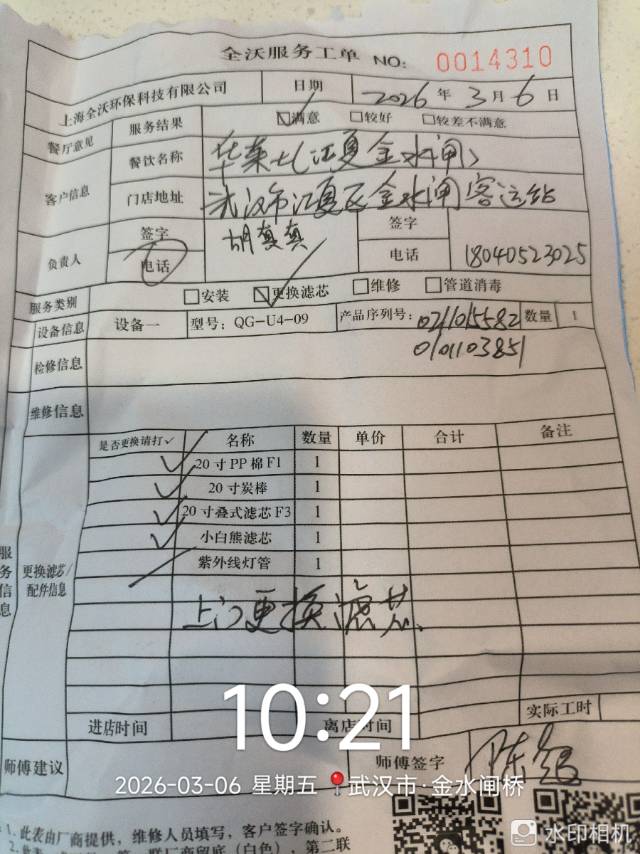 全沃服务工单 NO: 0014310
上海全沃环保科技有限公司 日期 2026 年 3 月 6 日
餐厅意见 服务结果 ☑满意 □较好 □较差不满意
客户信息 餐饮名称 华莱士(江夏金水闸)
门店地址 武汉市江夏区金水闸客运站
负责人 签字 胡真真 签字
电话 电话 18040523025
服务类别 □安装 ☑更换滤芯 □维修 □管道消毒
设备信息 设备一 型号: QG-U4-09 产品序列号: 0211015582 数量 1
0101103851
检修信息
维修信息
服务信息 更换滤芯/配件信息 是否更换请打✓ 名称 数量 单价 合计 备注
✓ 20寸PP棉F1 1
✓ 20寸炭棒 1
✓ 20寸叠式滤芯F3 1
✓ 小白熊滤芯 1
紫外线灯管 1
上门更换滤芯
10:21
进店时间 离店时间 实际工时
师傅建议 师傅签字
2026-03-06 星期五 武汉市·金水闸桥
1.此表由厂商提供，维修人员填写，客户签字确认。
水印相机